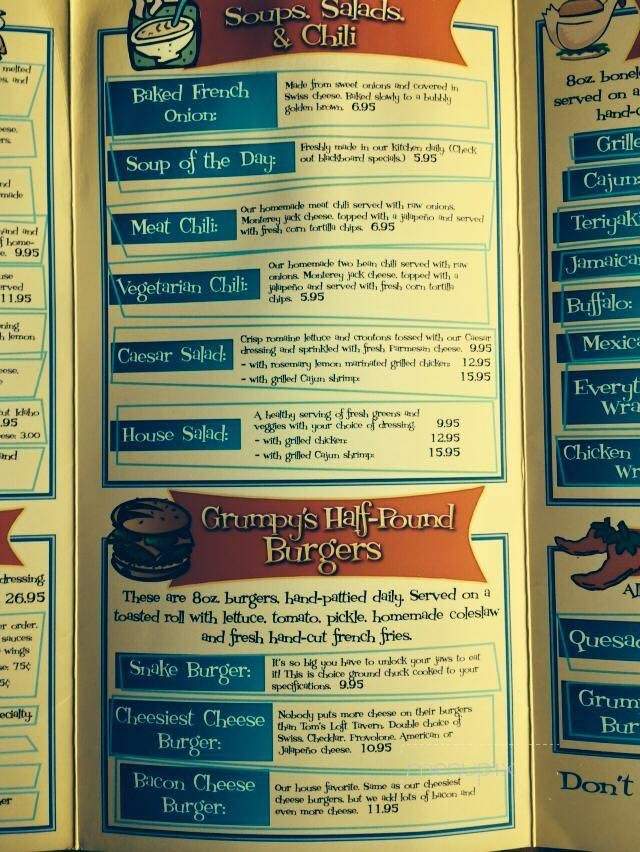 Soups, Salads,
& Chili
Baked French
Onion:
Made from sweet onions and covered in
Swiss cheese. Baked slowly to a bubbly
golden brown. 6.95
Soup of the Day:
Freshly made in our kitchen daily. (Check
out blackboard specials.) 5.95
Meat Chili:
Our homemade meat chili served with raw onions,
Monterey jack cheese, topped with a jalapeño and served
with fresh corn tortilla chips. 6.95
Vegetarian Chili:
Our homemade two bean chili served with raw
onions, Monterey jack cheese, topped with a
jalapeño and served with fresh corn tortilla
chips. 5.95
Caesar Salad:
Crisp romaine lettuce and croutons tossed with our Caesar
dressing and sprinkled with fresh Parmesan cheese. 9.95
- with rosemary lemon marinated grilled chicken: 12.95
- with grilled Cajun shrimp: 15.95
House Salad:
A healthy serving of fresh greens and
veggies with your choice of dressing. 9.95
- with grilled chicken: 12.95
- with grilled Cajun shrimp: 15.95
Grumpy's Half-Pound
Burgers
These are 8oz. burgers, hand-pattied daily. Served on a
toasted roll with lettuce, tomato, pickle, homemade coleslaw
and fresh hand-cut french fries.
Snake Burger:
It's so big you have to unlock your jaws to eat
it! This is choice ground chuck cooked to your
specifications. 9.95
Cheesiest Cheese
Burger:
Nobody puts more cheese on their burgers
than Tom's Loft Tavern. Double choice of
Swiss, Cheddar, Provolone, American or
Jalapeño cheese. 10.95
Bacon Cheese
Burger:
Our house favorite. Same as our cheesiest
cheese burgers, but we add lots of bacon and
even more cheese. 11.95
melted
and
9.95
11.95
lemon
cut Idaho
.95
3.00
and
dressing.
26.95
order.
sauces:
wings
75¢
8oz. bonel
served on a
hand-c
Grille
Cajun:
Teriyaki
Jamaica
Buffalo:
Mexica
Everyt
Wra
Chicken
Wr
Quesad
Grum
Bur
Don't